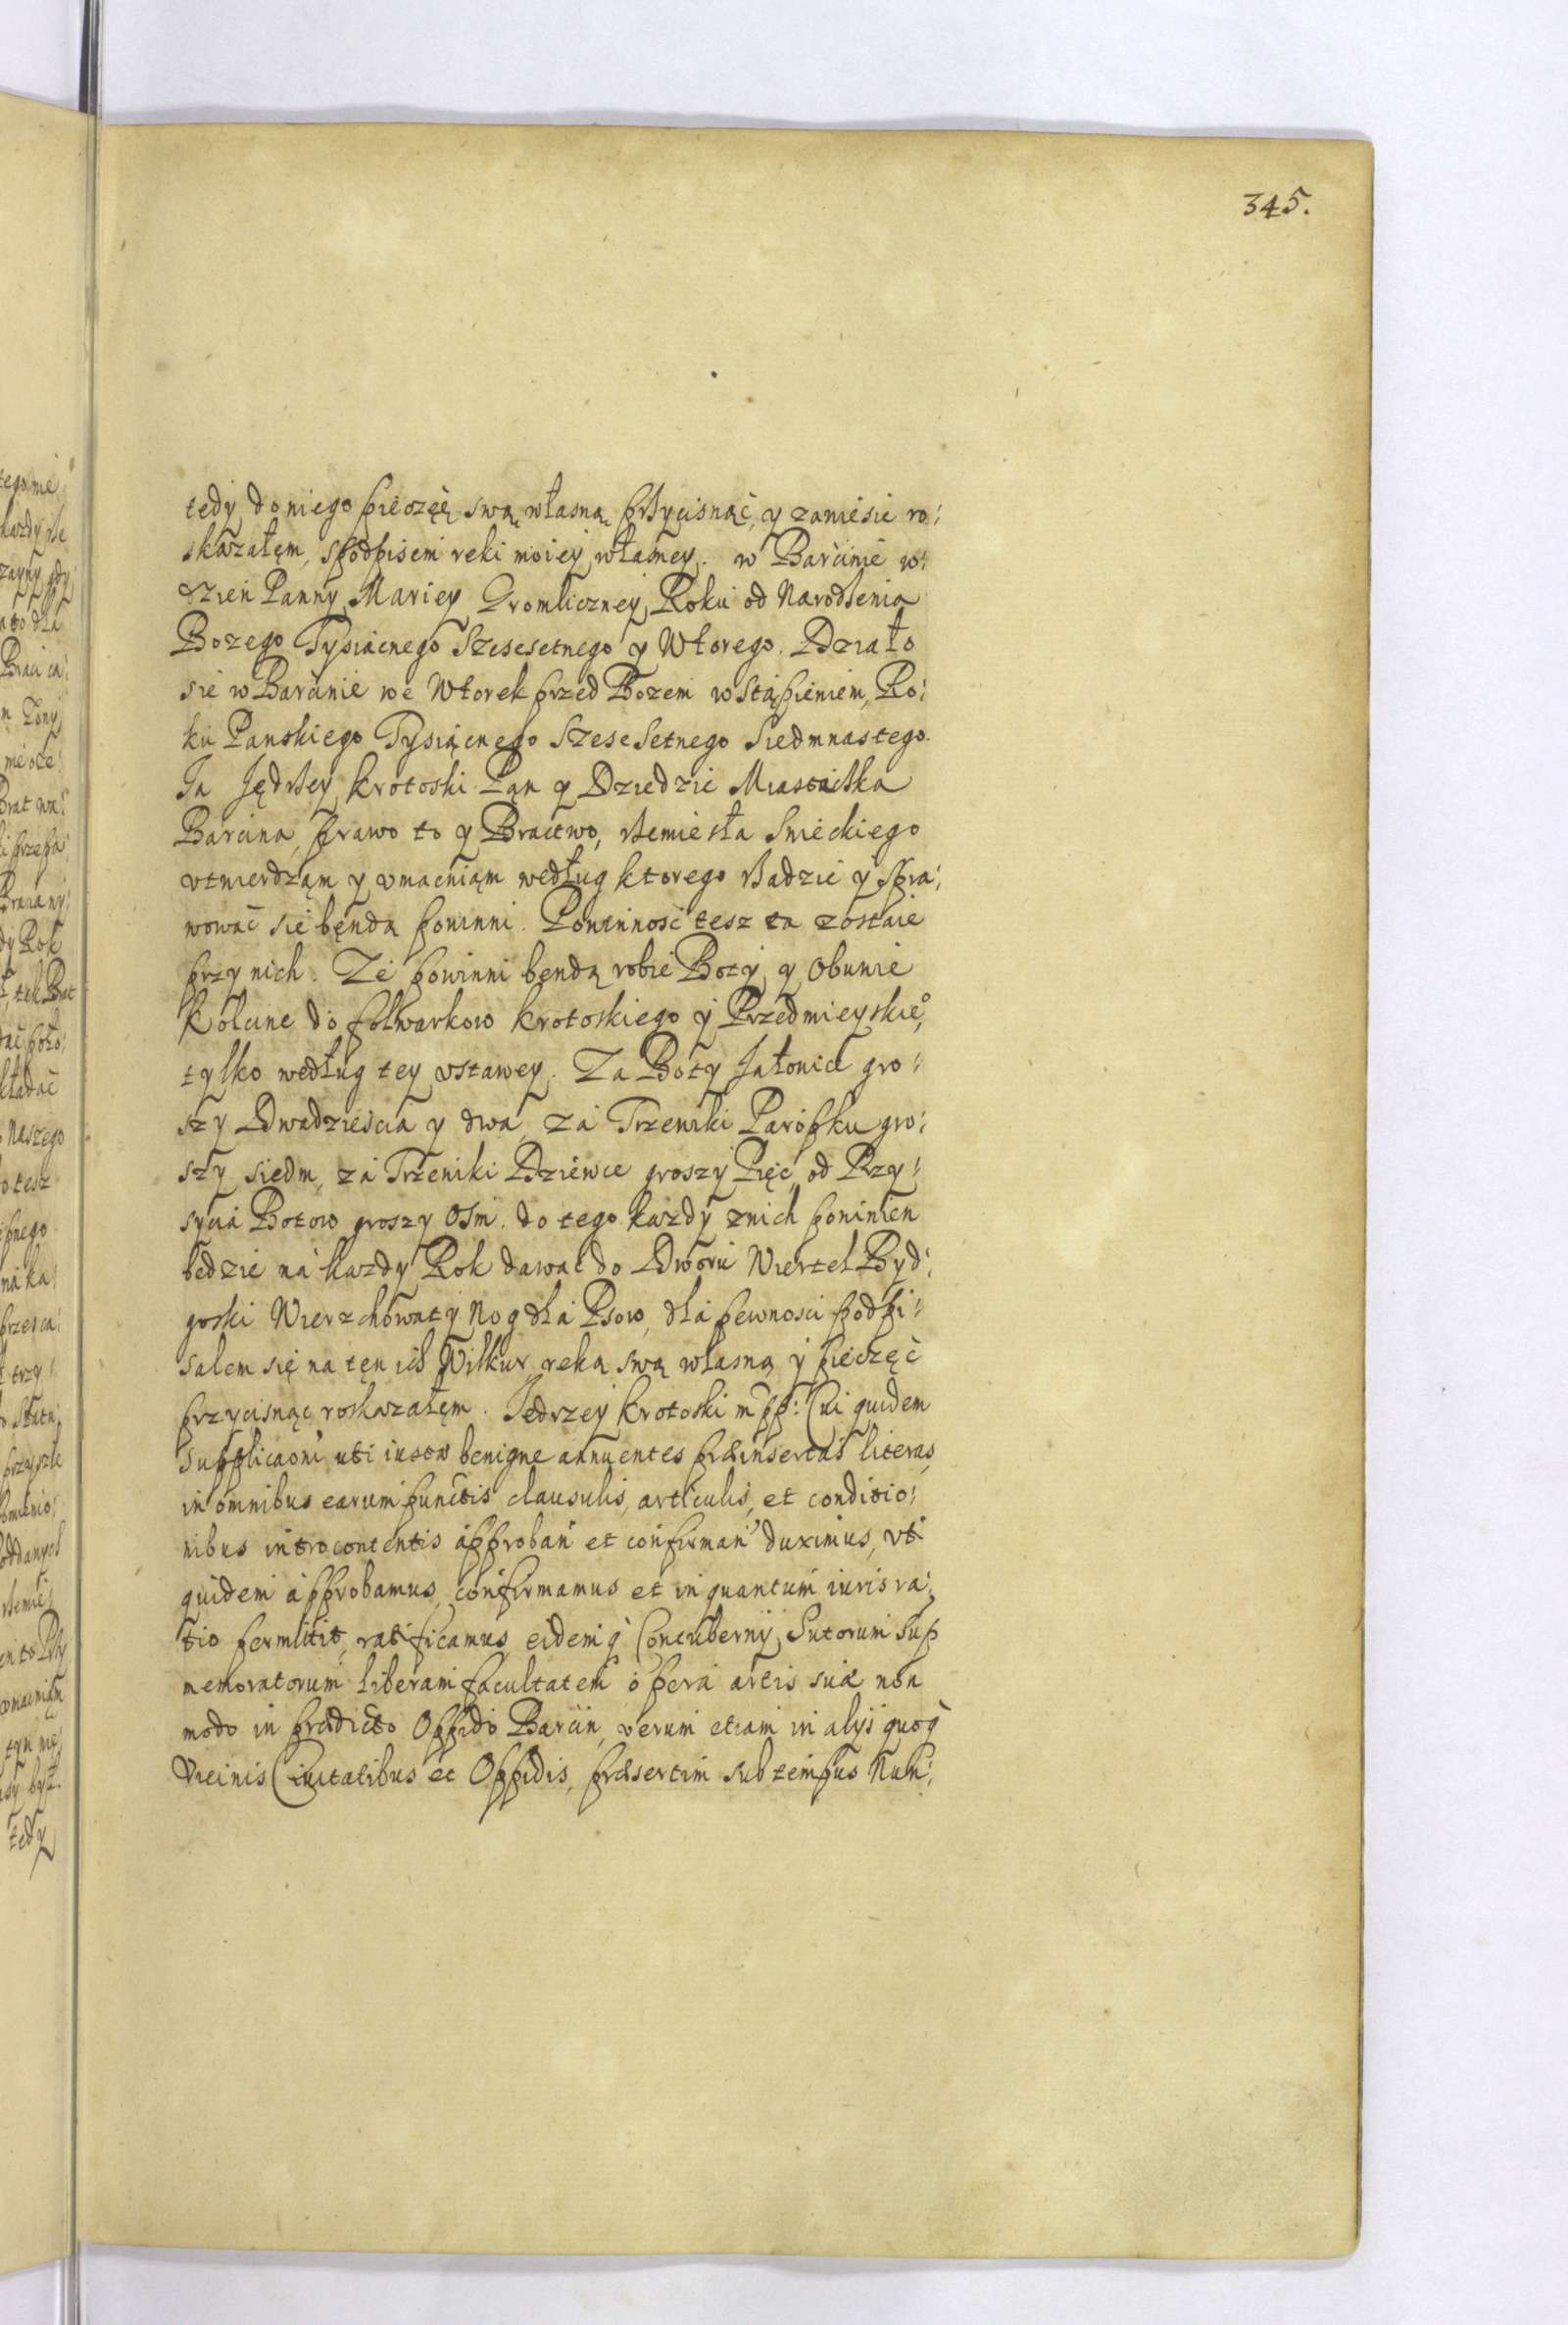 345.
tedy do niego pieczęć swą własną przycisnąć, y zawiesić ro:
skazałęm, spodpisem reki moiey własney. w Barcinie w:
dzień Panny Mariey Gromliczney Roku od Narodzenia
Bozego Tysiącnego Szescsetnego y Wtorego. Działo
sie w Barcinie we Wtorek przed Bozem wstąpieniem, Ro:
ku Panskiego Tysiącnego Szescsetnego Siedmnastego.
Ja Jędrzey Krotoski Pąn y Dziedzic Miastaczka
Barcina, prawo to y Bractwo, rzemiesła Swieckiego
vtwierdząm y vmacniąm według ktorego rządzić y spra:
wować sie bęndą powinni. Powinność tesz ta zostaie
przy nich. Ze powinni bendą robić Boty y Obuwie
Kolcine do folwarkow Krotoskiego y Przedmieyskie°,
tylko według tey vstawey. Za Boty Jałowicl gro:
szy Dwadziescia y dwa, za Trzewiki Paropku gro:
szy siedm, za Trzewiki Dziewce groszy Pięć, od Przy:
sycia Botow groszy Osm. do tego kazdy znich powinien
będzie na kazdy Rok dawać do Dworu Wiertel Byd:
goski Wierzchowaty Nog dla Psow, dla pewnosci podpi:
salem się na tęn ich Wilkur reką swą własną y pieczęć
przycisnąc roskazałęm. Jedrzey Krotoski mpp: Cui quidem
supplicaoni uti iustæ benigne annuentes præinsertas literas,
in omnibus earum punctis clausulis, articulis, et conditio:
nibus introcontentis approban et confirman duximus, vti
quidem approbamus, confirmamus et in quantum iuris ra:
tio permittit, ratificamus eidemq Contubernij Sutorum sup
memoratorum liberam facultatem opera artis suæ non
modo in prædicto Oppido Barcin, verum etiam in alijs quoq
Vicinis Ciuitatibus et Oppidis, præsertim sub tempus Nun: